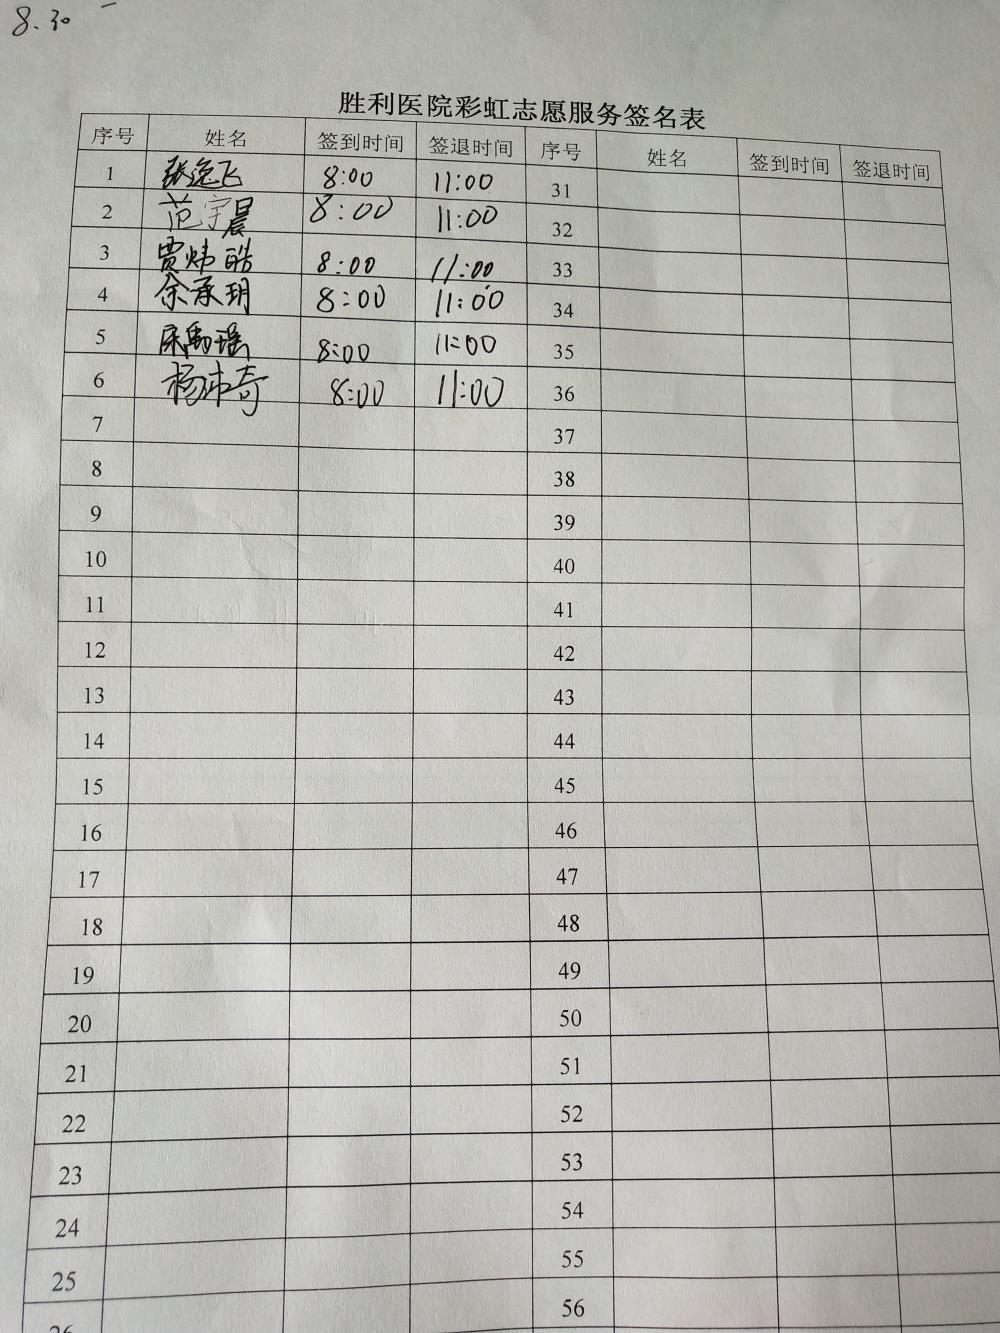 8.30 一
胜利医院彩虹志愿服务签名表
序号 姓名 签到时间 签退时间 序号 姓名 签到时间 签退时间
1 张逸飞 8:00 11:00 31
2 范宇晨 8:00 11:00 32
3 贾炜皓 8:00 11:00 33
4 余承玥 8:00 11:00 34
5 8:00 11:00 35
6 杨沛奇 8:00 11:00 36
7 37
8 38
9 39
10 40
11 41
12 42
13 43
14 44
15 45
16 46
17 47
18 48
19 49
20 50
21 51
22 52
23 53
24 54
25 55
26 56